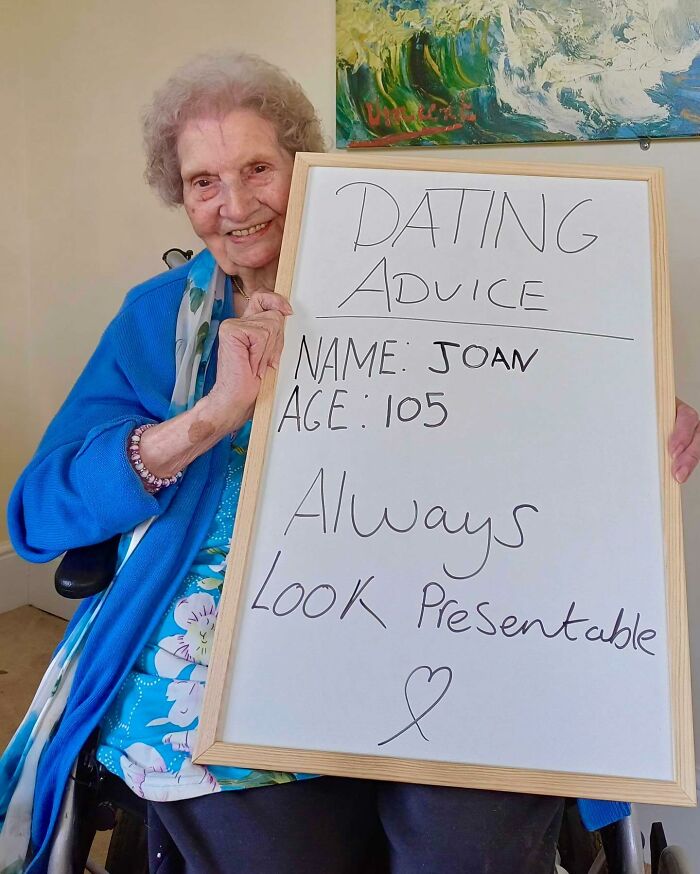 Vincent
DATING
ADVICE
NAME: JOAN
AGE: 105
Always
LOOK Presentable